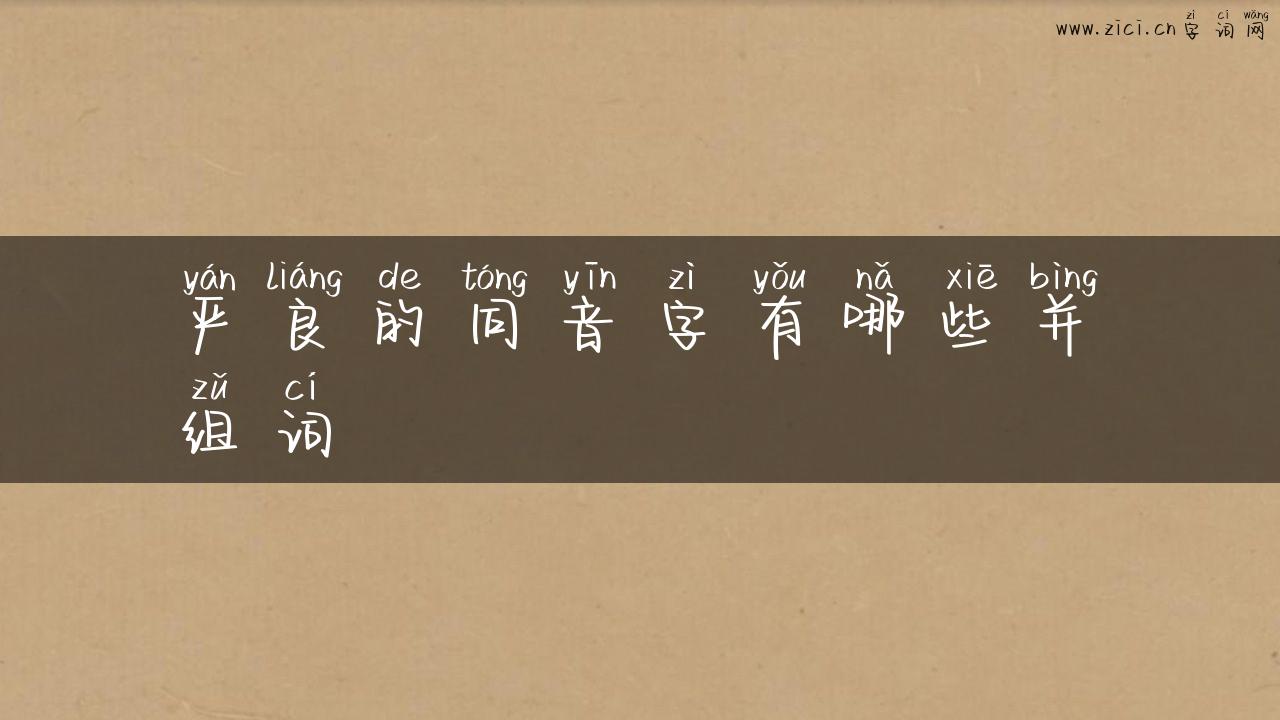 zì cí wǎng
www.zici.cn 字词网
yán liáng de tóng yīn zì yǒu nǎ xiē bìng
严良的同音字有哪些并
zǔ cí
组词